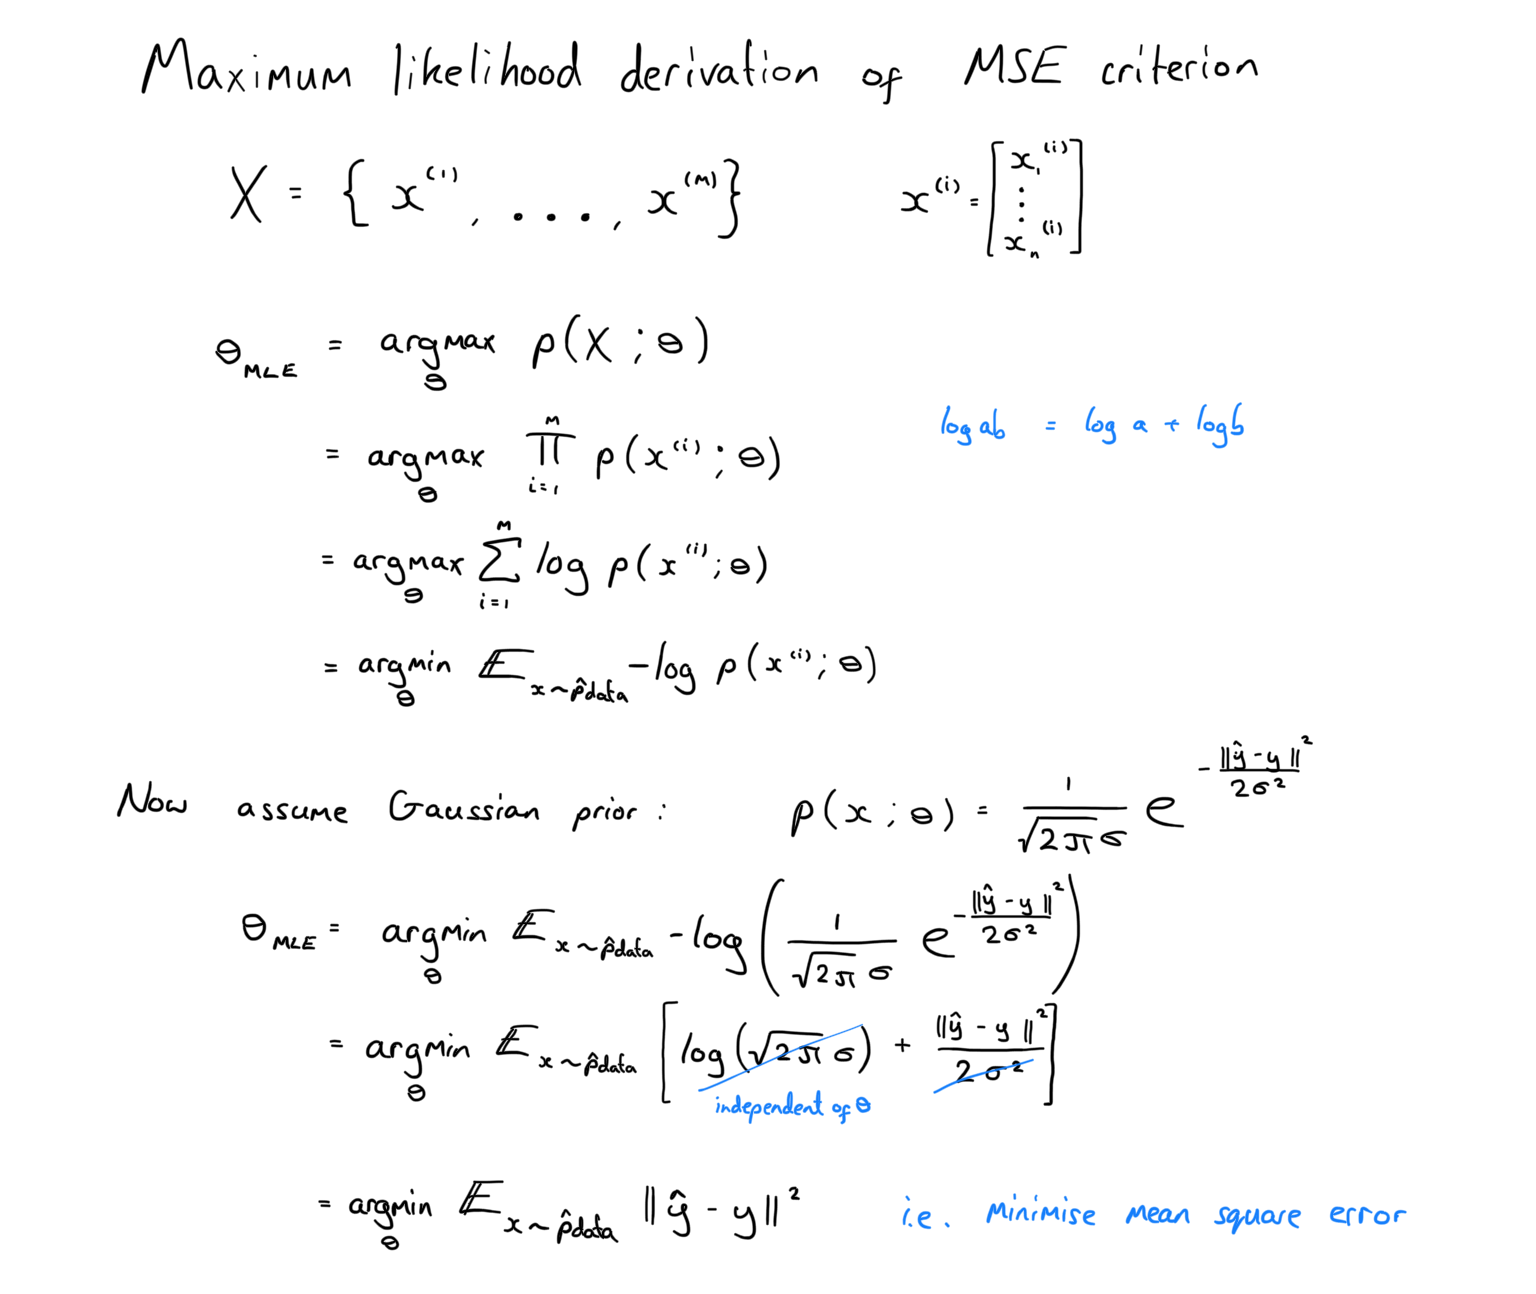 Maximum likelihood derivation of MSE criterion
X = { x^(1), ..., x^(M) }    x^(i) = [ x_1^(i) ⋮ x_n^(i) ]
θ_MLE = argmax_θ p(X ; θ)
= argmax_θ ∏_{i=1}^{M} p(x^(i) ; θ)    log ab = log a + log b
= argmax_θ ∑_{i=1}^{M} log p(x^(i) ; θ)
= argmin_θ 𝔼_{x~p̂data} -log p(x^(i) ; θ)
Now assume Gaussian prior :    p(x ; θ) = 1/(√(2π) σ) e^{-‖ŷ - y‖²/2σ²}
θ_MLE = argmin_θ 𝔼_{x~p̂data} -log( 1/(√(2π) σ) e^{-‖ŷ - y‖²/2σ²} )
= argmin_θ 𝔼_{x~p̂data} [ log(√(2π) σ) + ‖ŷ - y‖²/2σ² ]
independent of θ
= argmin_θ 𝔼_{x~p̂data} ‖ŷ - y‖²    i.e. minimise mean square error